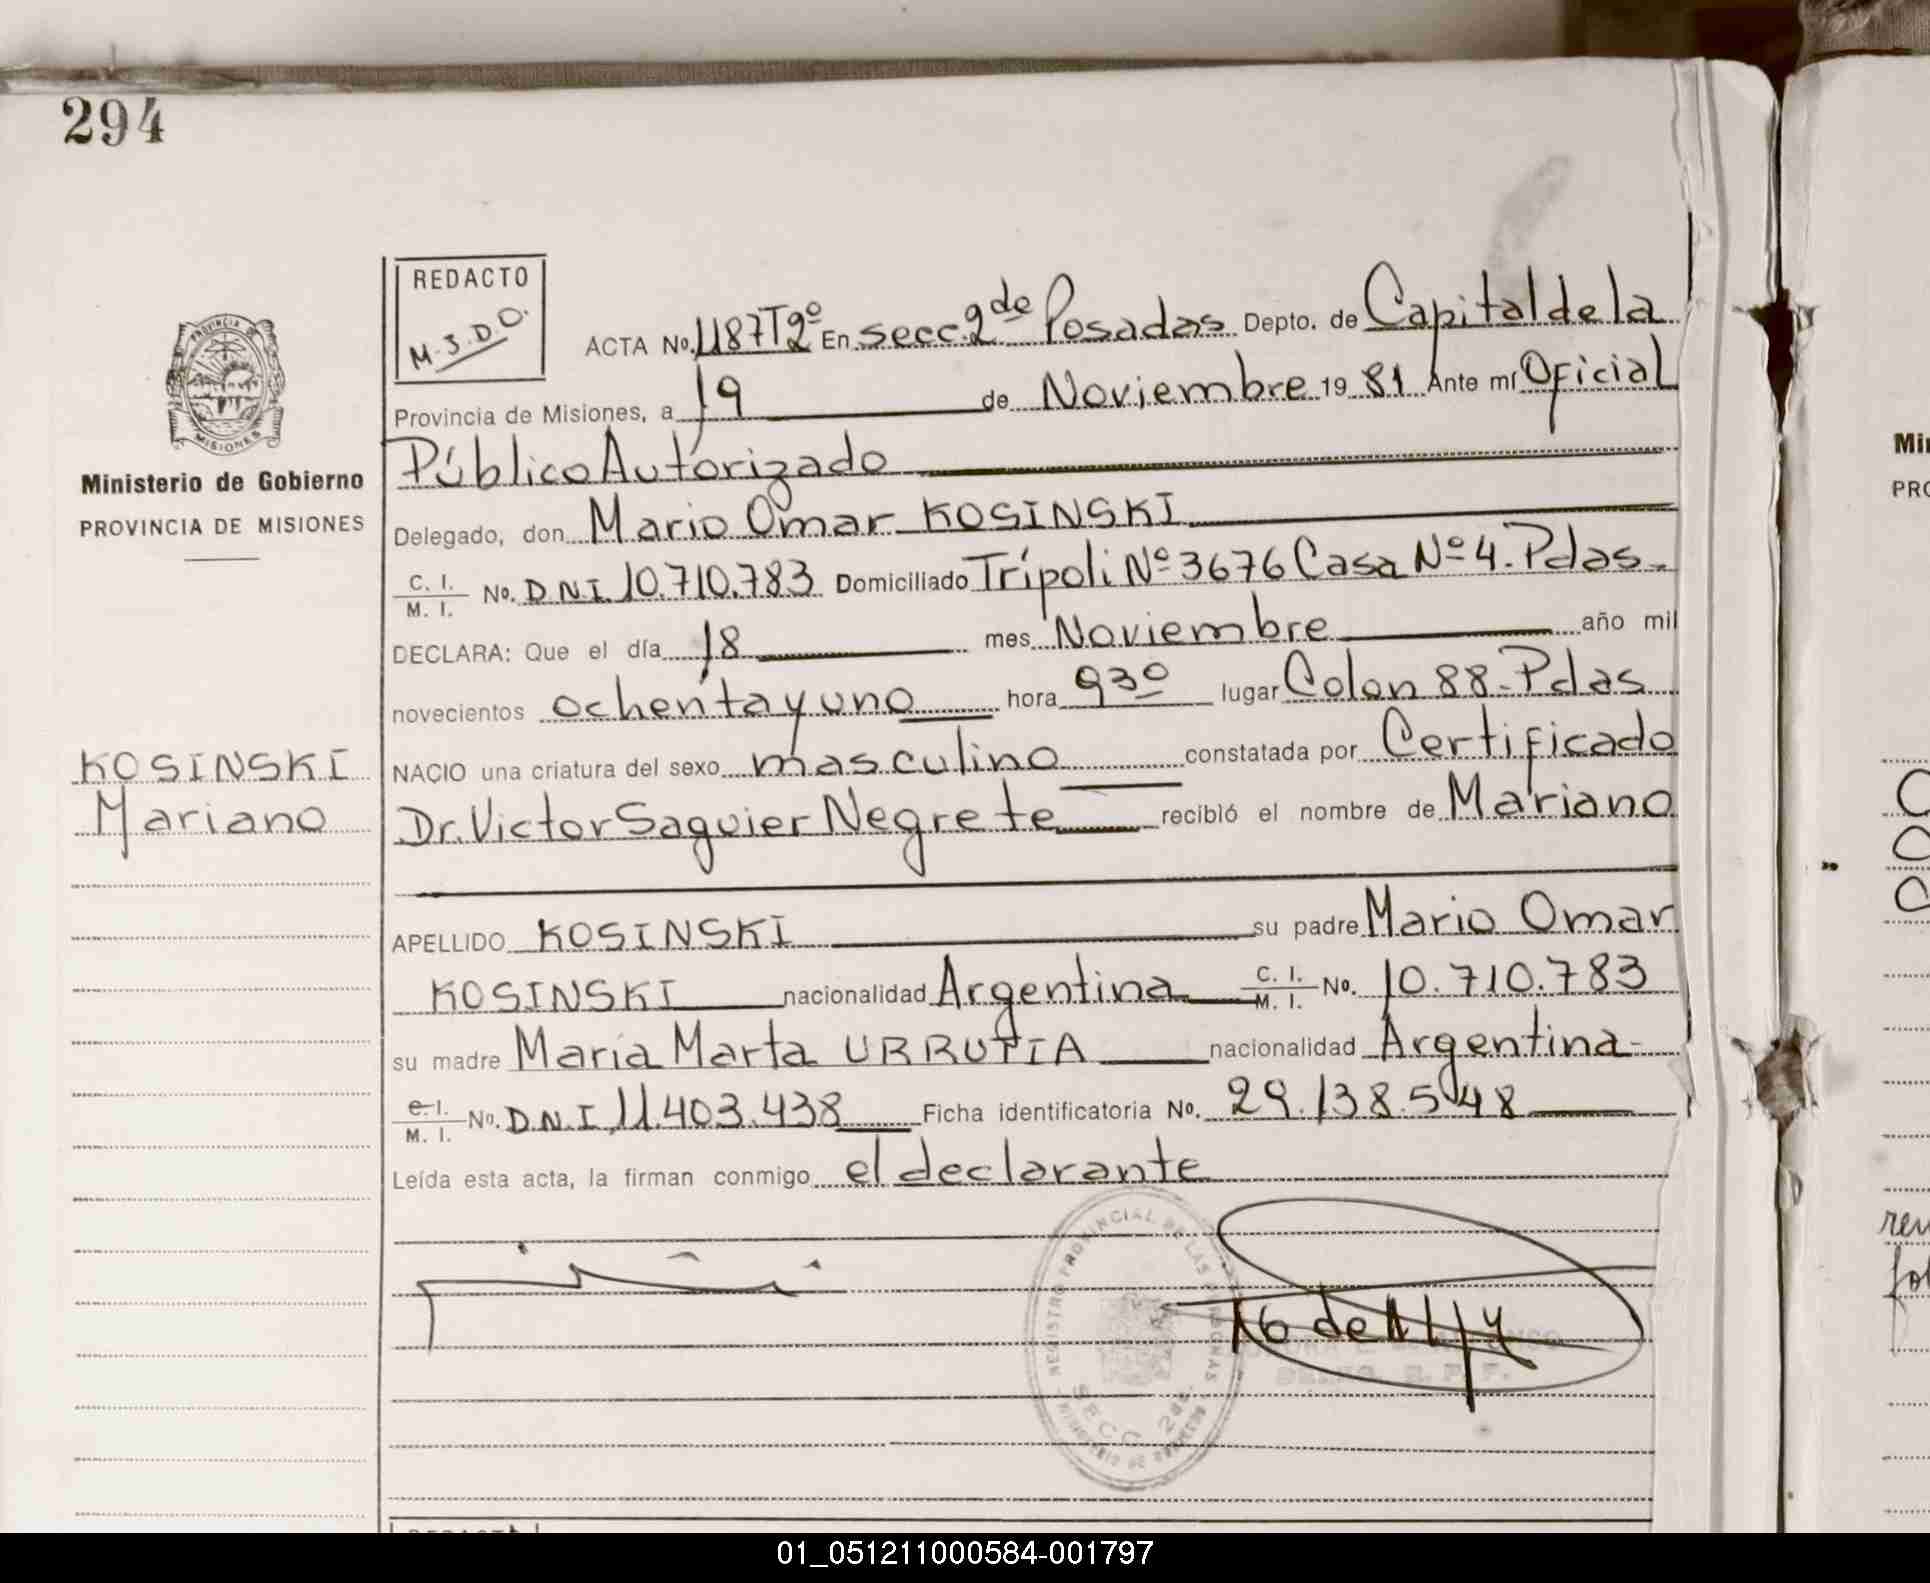 294
REDACTO
M.S.D.O.
ACTA No. 1187 Tº 2º En secc. 2 de Posadas Depto. de Capital de la
Provincia de Misiones, a 19 de Noviembre 1981 Ante mí Oficial
Público Autorizado
PROVINCIA DE
MISIONES
Ministerio de Gobierno
PROVINCIA DE MISIONES
Delegado, don Mario Omar KOSINSKI
C. I. / M. I. No. D.N.I. 10.710.783 Domiciliado Trípoli Nº 3676 Casa Nº 4. Pdas.
DECLARA: Que el día 18 mes Noviembre año mil
novecientos ochenta y uno hora 9 30 lugar Colon 88-Pdas
KOSINSKI
Mariano
NACIO una criatura del sexo masculino constatada por Certificado
Dr. Victor Saguier Negrete recibió el nombre de Mariano
APELLIDO KOSINSKI su padre Mario Omar
KOSINSKI nacionalidad Argentina C. I. / M. I. No. 10.710.783
su madre María Marta URRUTIA nacionalidad Argentina
C. I. / M. I. No. D.N.I. 11.403.438 Ficha identificatoria No. 29.138.548
Leída esta acta, la firman conmigo el declarante
REGISTRO PROVINCIAL DE LAS PERSONAS
SECC. 2da.
MINISTERIO DE GOBIERNO
Mi
PRO
01_051211000584-001797